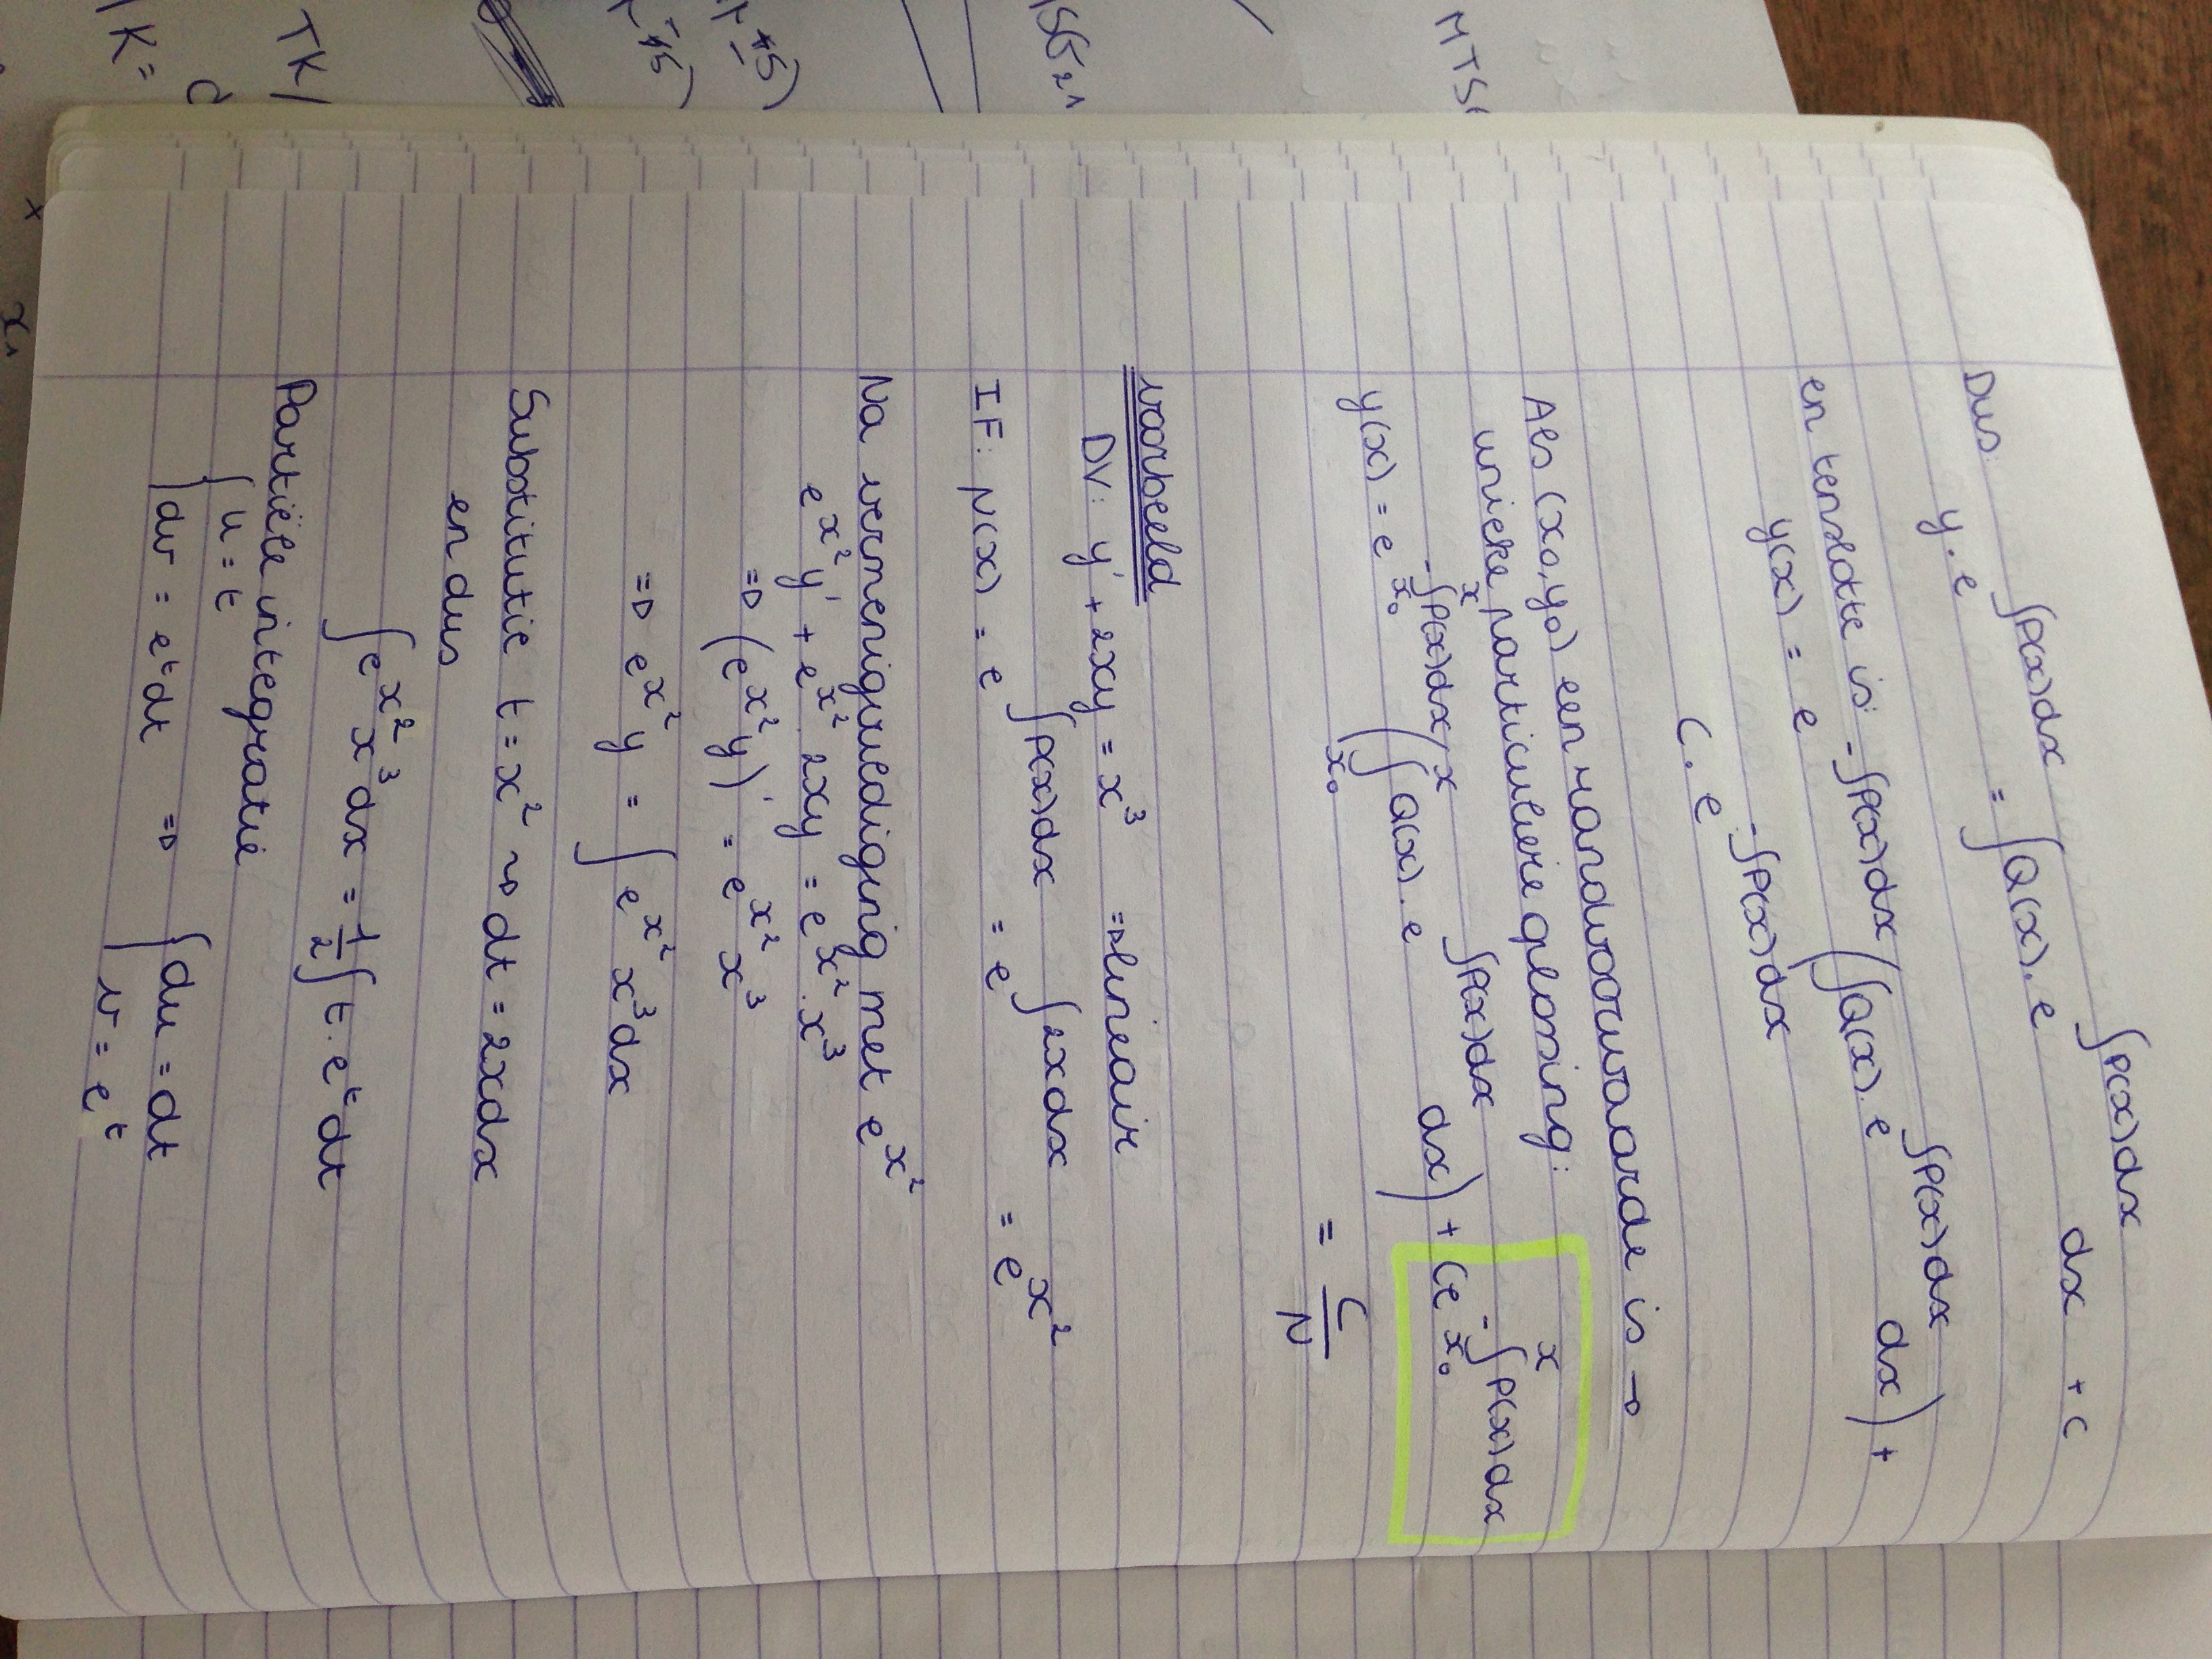 Dus: y · e^{∫P(x)dx} = ∫Q(x) · e^{∫P(x)dx} dx + C
en tenslotte is:
y(x) = e^{-∫P(x)dx} (∫Q(x) · e^{∫P(x)dx} dx) +
C · e^{-∫P(x)dx}
Als (x₀,y₀) een randvoorwaarde is →
unieke particuliere oplossing:
y(x) = e^{-∫_{x₀}^{x} P(x)dx} (∫_{x₀}^{x} Q(x) · e^{∫P(x)dx} dx) + Ce^{-∫_{x₀}^{x} P(x)dx}
= C/N
voorbeeld
DV: y' + 2xy = x³ ⇒ lineair
IF: N(x) = e^{∫P(x)dx} = e^{∫2xdx} = e^{x²}
Na vermenigvuldiging met e^{x²}
e^{x²}y' + e^{x²} · 2xy = e^{x²} · x³
⇒ (e^{x²}y)' = e^{x²}x³
⇒ e^{x²}y = ∫e^{x²}x³dx
Substitutie t = x² ⇝ dt = 2xdx
en dus
∫e^{x²}x³dx = 1/2 ∫t · e^t dt
Partiële integratie
{u = t
{dv = e^t dt ⇒ {du = dt
{v = e^t
TK/
K=
x₁